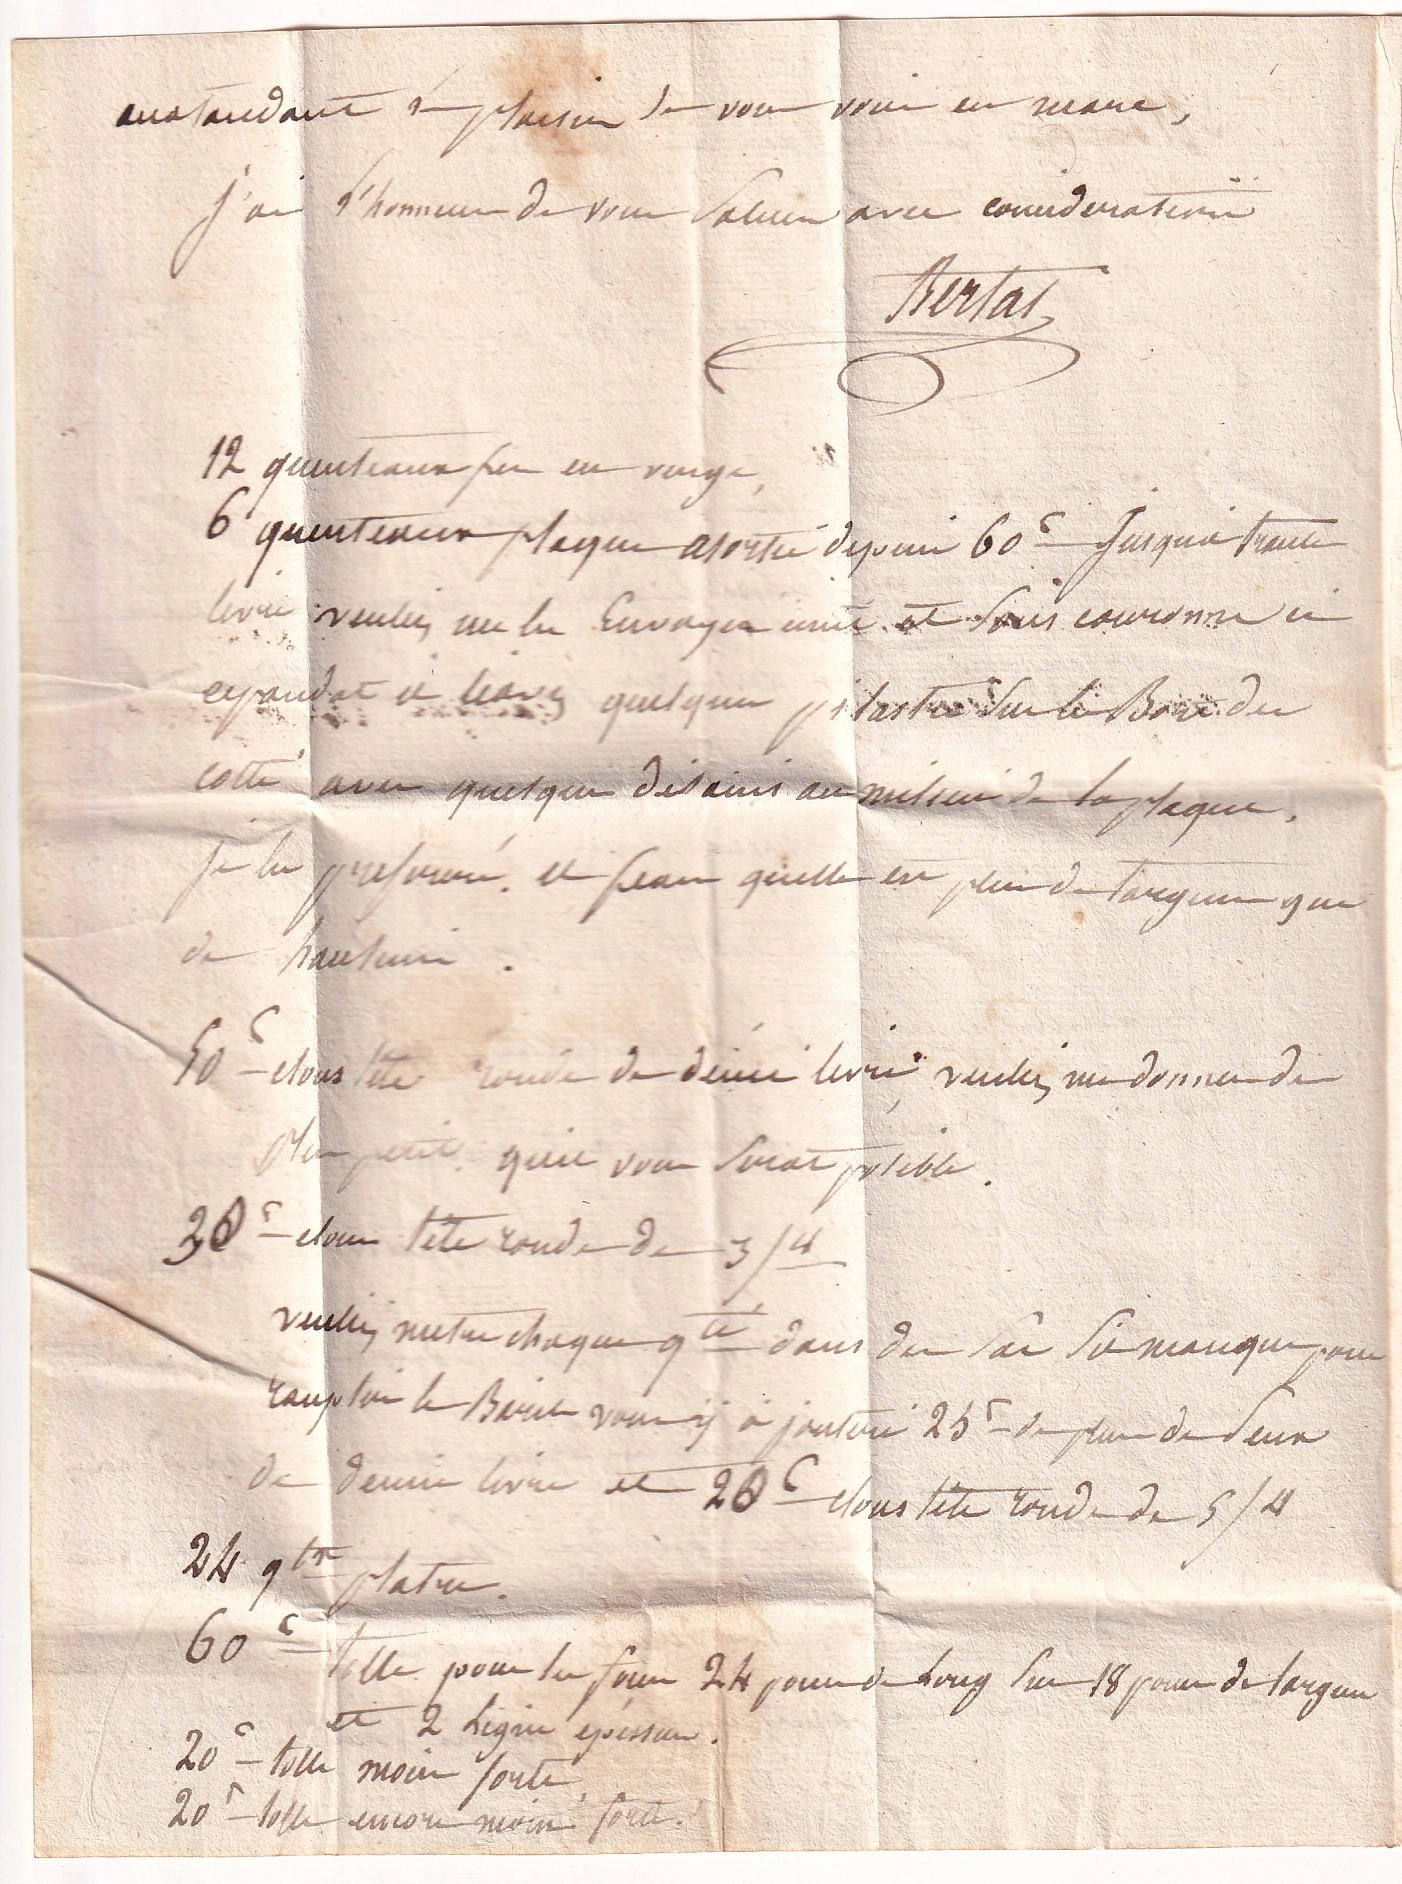 anatandant le plaisir de vous voir en mare,
j'ai l'honneur de vous saluer avec consideration
Bertas
12 quinteaux fer en verge,
6 quinteaux plaque asortie depuis 60 c jusqu'a trante
livre veuliez me les Envoyer unie et sans couronne
cepandat il y quelques pilastre sur le Bord des
cotté avec quelque désains au milieu de la plaque,
je les preferere. et quelle ere plus de largeur que
de hauteur.
50 c clous téte ronde de demie livre, veuliez me donner de
plus petit. qu'il vous serat posible.
30 c clous téte ronde de 3/4
veuliez metre chaque qté dans des sac s'il manque pour
ramplir le Baril vous y ajouteré 25 c de plus de seux
de demie livre et 20 c clous téte ronde de 5/4
24 qtx platre.
60 c tolle pour les four 24 pouce de Long sur 18 pouce de largeur
et 2 Ligne epesseur.
20 c tolle moin forte
20 c tolle encore moin forte.